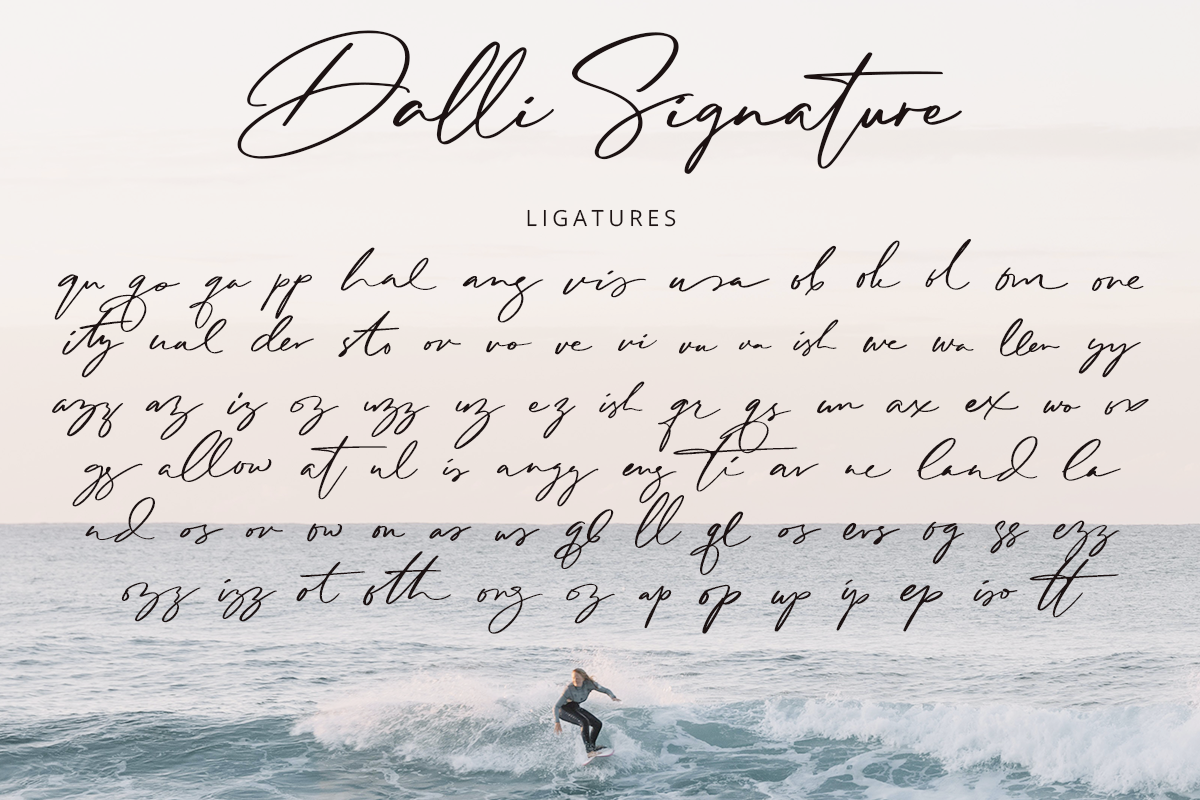 Dalli Signature
LIGATURES
qu go qa pp hal ang vis usa ob ok ol om one
ity ual der sto or vo ve vi vu va ish we wa llen yy
azz az iz oz uzz uz ez ish gr gs un ax ex wo ox
gs allow at ul is angy eng ti av ue land la
nd os ov ow on as us gb ll gl os ers og ss ezz
ozz izz ot oth ong oz ap op up ip ep iso tt